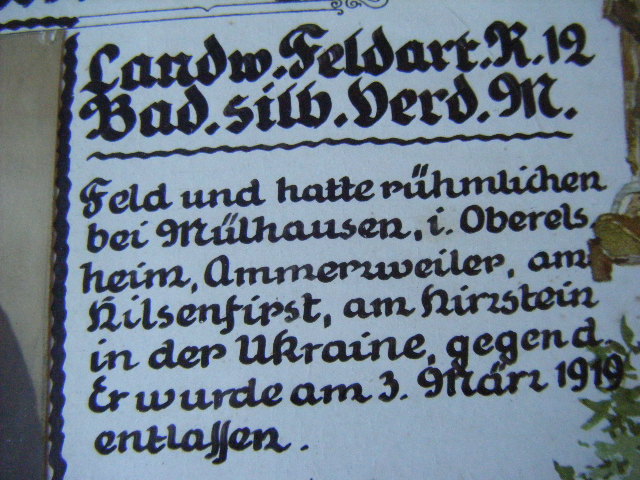 Landw. Feldart. R. 12
Bad. silb. Verd. M.
Feld und hatte rühmlichen
bei Mülhausen, i. Oberels
heim, Ammerzweiler, am
Hilsenfirst, am Hirzstein
in der Ukraine, gegen d.
Er wurde am 3. März 1919
entlassen.